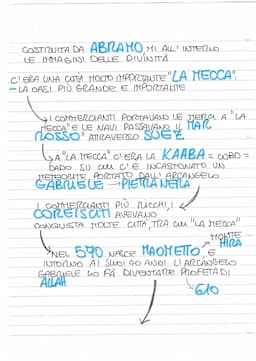 COSTRUITA DA ABRAMO, MI ALL'INTERNO
LE IMMAGINI DELLE DIVINITÀ
C'ERA UNA CITTÀ MOLTO IMPORTANTE "LA MECCA"
- LA OASI PIÙ GRANDE E IMPORTANTE
I COMMERCIANTI PORTAVANO LE MERCI A "LA
MECCA" E LE NAVI PASSAVANO IL MAR
ROSSO ATTRAVERSO SUEZ
A "LA MECCA" C'ERA LA KAABA = CUBO =
DADO SU CUI C'È INCASTONATO UN
METEORITE PORTATO DALL'ARCANGELO
GABRIELE → PIETRA NERA
I COMMERCIANTI PIÙ RICCHI, I
COREISCITI AVEVANO
CONQUISTA MOLTE CITTÀ, TRA CUI "LA MECCA"
MONTE
HIRA
NEL 570 NASCE MAOMETTO, E
INTORNO AI SUOI 40 ANNI L'ARCANGELO
GABRIELE LO FA DIVENTARE PROFETA DI
ALLAH
610